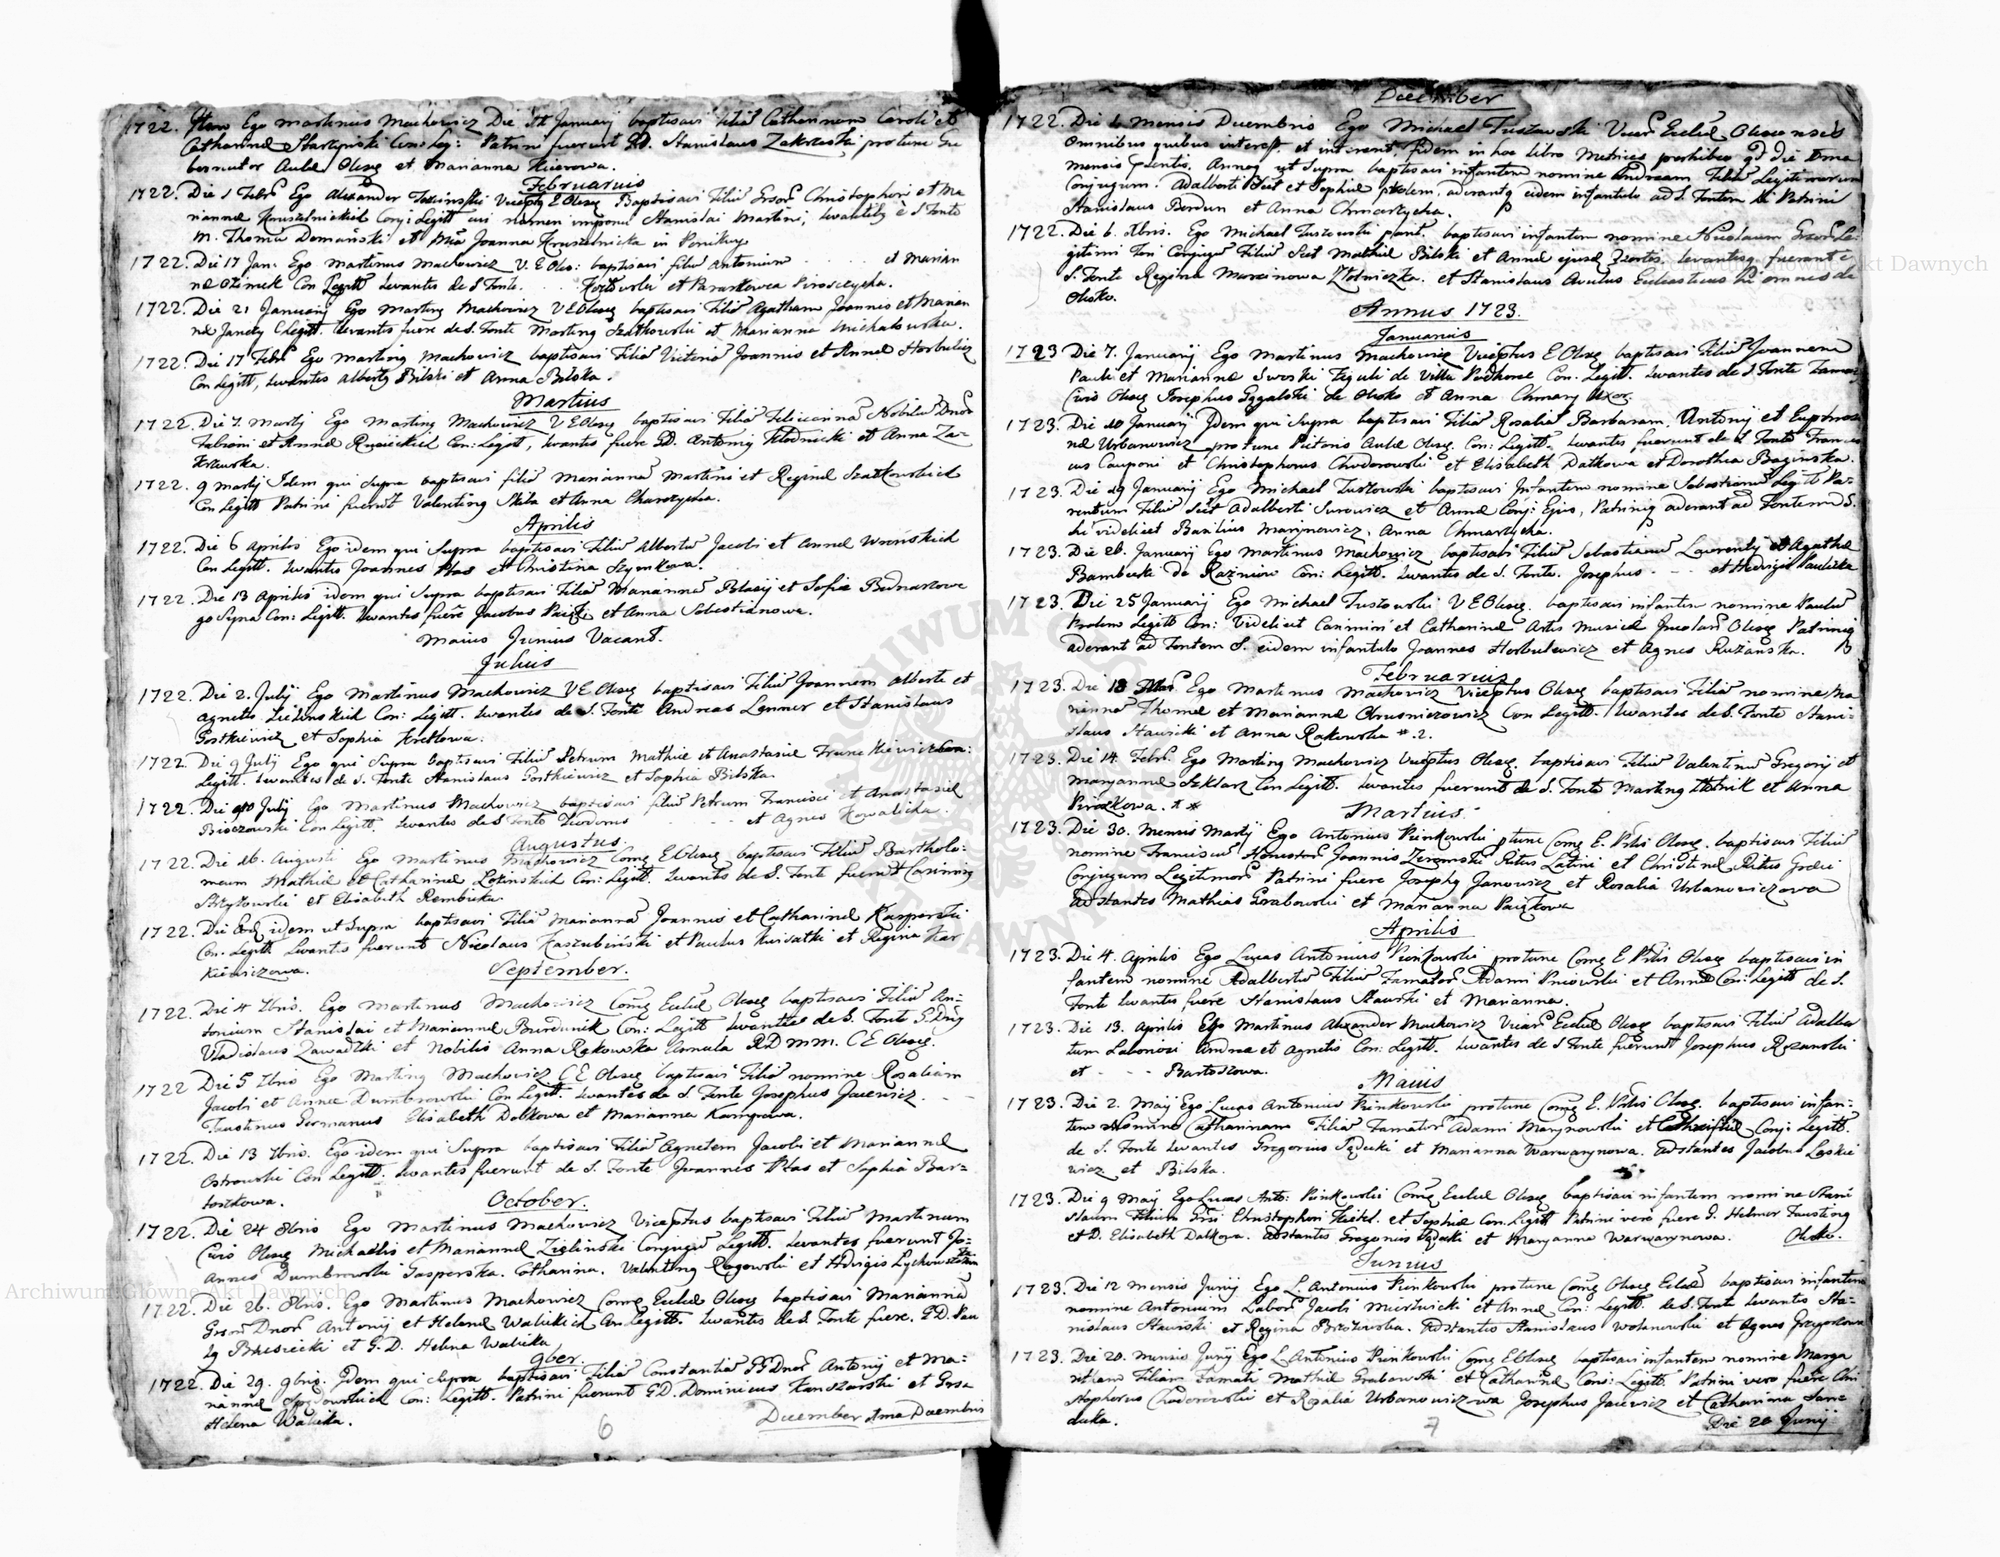 1722. Item Ego Martinus Machowicz Die January baptisavi Filiã Catharinam Caroli et
Catharinæ Starzynski Con: Leg: Patrini fuerunt GD. Stanislaus Zakrzeski protunc Gu
bernator Aulæ Olesc et Marianna Kierowa.
Februarius
1722. Die 1 Febr Ego Alexander Vicepts E Olesc Baptisavi Filiũ Christophori et Ma
riannæ Kruszelnickich Conj: Legitt cui nomen imposui Stanislai Martini, levantibq è S Fonte
M. Thoma Domański et Joanna Kruszelnicka in Ponikwy
1722. Die 17 Jan: Ego Martinus Machowicz V. E Oles: baptisavi filiũ Antonium . . . et Marian
næ Con Legitt Levantes de S Fonte. . . Kozlowski et Paraskewia
1722. Die 21 January Ego Marting Machowicz V E Olesc baptisavi Filiã Agatham Joannis et Marian
næ Janczy C Legitt. Levantes fuere de S. Fonte Marting Szatkowski et Marianna Michalowska.
1722. Die 17 Febr Ego Marting Machowicz baptisavi Filiã Joannis et Annæ Horbulicz
Con Legitt, Levantes Albertq Bilski et Anna Bilska.
Martius
1722. Die 7. Martij Ego Marting Machowicz V E Olesc baptisavi Filiã Felicianã Nobiliũ Dnor
Fabiani et Annæ Rusieckich Con: Legitt, Levantes fuere GD. Antonig Klodnicki et Anna Za-
krzewska.
1722. 9 Martij Idem qui Supra baptisavi filiã Mariannã Martini et Reginæ Szatkowskich
Con Legitt Patrini fuerunt Valenting Skiba et Anna Charzycha.
Aprilis
1722. Die 6 Aprilis Ego idem qui Supra baptisavi Filiũ Albertũ Jacobi et Annæ Wronskich
Con Legitt. Levantes Joannes Płas et Christina Szymkowa.
1722. Die 13 Aprilis idem qui Supra baptisavi Filiã Mariannã Blasij et Sofia Bednarzowe
go Syna Con: Legitt. Levantes fuere Jacobus et Anna Sebestianowa.
Maius Junius Vacant.
Julius
1722. Die 2. July Ego Martinus Machowicz V E Olesc baptisavi Filiũ Joannem Alberti et
Agnetis Zielinskich Con: Legitt. Levantes de S. Fonte Andreas Lenner et Stanislaus
Gostkiewicz et Sophia Kretkowa.
1722. Die 9 July Ego qui Supra baptisavi Filiũ Petrum Mathiæ et Anastasiæ Franckiewicz Con:
Legitt. Levantes de S. Fonte Stanislaus Gostkiewicz et Sophia Bilska
1722. Die 10 July Ego Martinus Machowicz baptisavi filiũ Petrum Francisci et Anastasiæ
Con Legitt. Levantes de S Fonte Theodorus . . . et Agnes Kowalicha.
Augustus
1722. Die 26. Augusti Ego Martinus Machowicz Comq E Olesc baptisavi Filiũ Bartholo-
meum Mathiæ et Catharinæ Con: Legitt. Levantes de S. Fonte fuerunt Casimirq
Strzytkowski et Elisabeth Rembicka
1722. Die Eod idem ut Supra baptisavi Filiã Mariannã Joannis et Catharinæ Kasperski
Con. Legitt. Levantes fuerunt Nicolaus Kaszubiński et Paulus et Regina Kar
kiewiczowa.
September.
1722. Die 4 7bris. Ego Martinus Machowicz Comq Eccliæ Olesc baptisavi Filiũ An-
tonium Stanislai et Mariannæ Burdunik Con: Legitt Levantes de S. Fonte G. Dnq
Vladislaus Zawadzki et Nobilis Anna Rakowska Annula RD MM. C E Olesc.
1722 Die 5 7bris Ego Marting Machowicz C E Olesc baptisavi Filiã nomine Rosaliam
Jacobi et Annæ Dumbrowski Con Legitt. Levantes de S. Fonte Josephus Jacewicz. - -
Faustinus Germanus Elisabeth Dalkowa et Marianna Kamprowa.
1722. Die 13 7bris. Ego idem qui Supra baptisavi Filiã Agnetem Jacobi et Mariannæ
Ostrowski Con Legitt. Levantes fuerunt de S. Fonte Joannes Płas et Sophia Bar-
toszkowa.
October.
1722. Die 24 8bris Ego Martinus Machowicz Viceptus baptisavi Filiũ Martinum
Civis Olesc Michaelis et Mariannæ Zielinski Conjugũ Legitt. Levantes fuerunt Jo-
annes Dumbrowski Gasperska. Catharina. Valenting Rogowski et Hedvigis
1722. Die 26. 8bris. Ego Martinus Machowicz Comq Eccliæ Olesc baptisavi Mariannã
Dnor Antonij et Helenæ Walickich Con Legitt. Levantes de S Fonte fuere. G D. Pau
lq Brzesiecki et G. D. Helena Walicka
9ber
1722. Die 29. 9bris. Idem qui Supra baptisavi Filiã Constantiã GG Dnor Antonij et Ma-
riannæ Con: Legitt. Patrini fuerunt GD. Dominicus Karszarski et Grsa
Helena Walicka.
December 1ma Decembris
6
December
1722. Die 1 Mensis Decembris Ego Michael Tustowski Vicar Eccliæ Olescensis
Omnibus quibus interest. et intererit, fidem in hoc libro Metrices perhibeo qd die 1ma
Mensis Anno ut Supra baptisavi infantem nomine Andream Filiũ Legitimorum
Conjugum. Adalberti et Sophiæ prolem, aderantq eidem infantulo ad S. Fontem Patrini
Stanislaus Berdun et Anna Chmarzycha.
1722. Die 6. Xbris. Ego Michael Tustowski baptisavi infantem nomine Nicolaum Le-
gitimi Tori Conjugũ Filiũ Scet Mathiæ Bilski et Annæ ejusd Levantesq. fuerunt è
S. Fonte Regina Marcinowa Złotniczka. et Stanislaus Avulus Ecclasticus hi omnes de
Olesko.
Annus 1723.
Januarius
1723 Die 7. Januarij Ego Martinus Machowicz Viceptus E Olesc baptisavi Filiũ Joannem
Pauli et Mariannæ Sworski Figuli de Villa Podhorce Con. Legitt. Levantes de S. Fonte
Civis Olesc Josephus Gogalski de Olesko et Anna Chmary Uxor.
1723. Die 10 January Idem qui Supra baptisavi Filiã Rosaliã Barbaram, Antonij et Euphrosi
næ Urbanowicz protunc Pictoris Aulæ Olesc. Con: Legitt. Levantes fuerunt de S Fonte Francis
cus Cauponi et Christophorus Chodorowski et Elisabeth Dalkowa et Dorothea Baginska.
1723. Die 19 January Ego Michael Tustowski baptisavi Infantem nomine Sebastianũ Legitt Pa-
rentum Filiũ Scet Adalberti Surowicz et Annæ Conj: Ejus, Patrinig aderant ad Fontem S.
hi videlicet Basilius Marynowicz, Anna Chmarzycha.
1723. Die 26. January Ego Martinus Machowicz baptisavi Filiũ Sebastianũ Laurenty et Agathæ
Bambuski de Rażniow Con: Legitt. Levantes de S. Fonte. Josephus - - - et Hedvigis Paulicka
1723. Die 25 January Ego Michael Tustowski V E Olesc. baptisavi infantem nomine Paulũ
Prolem Legitt Con: Videlicet Casimiri et Catharinæ Artis Musicæ Olesc Patrinig
aderant ad Fontem S. eidem infantulo Joannes Horbulewicz et Agnes Rużańska.
Februarius
1723. Die 18 Febr. Ego Martinus Machowicz Viceptus Olesc baptisavi Filiã nomine Ma
riannã Thomæ et Mariannæ Chrusniczowicz Con Legitt. Levantes de S. Fonte Stani-
slaus Stawski et Anna Rakowska * .2.
1723. Die 14. Febr. Ego Marting Machowicz Viceptus Olesc baptisavi Filiũ Valentinũ Gregorij et
Maryannæ Szklarz Con Legitt. Levantes fuerunt de S. Fonte Marting Kotnik et Anna
Pirożkowa. * *
Martius.
1723. Die 30. Mensis Martij Ego Antonius Pienkowski ptunc Comq E. Ptis Olesc. baptisavi Filiũ
nomine Franciscũ Honestor Joannis Zeromski Ritus Latini et Christinæ Ritus Græci
Conjugum Legitimor Patrini fuere Josephq Janowicz et Rosalia Urbanowiczowa
adstantes Mathias Grabowski et Marianna Paiczkowa
Aprilis
1723. Die 4. Aprilis Ego Lucas Antonius Pienkowski protunc Comq E Ptis Olesc baptisavi in
fantem nomine Adalbertũ Filiũ Famator Adami Pniowski et Annæ Con: Legitt de S.
Fonte Levantes fuere Stanislaus Stawski et Marianna.
1723. Die 13. Aprilis Ego Martinus Alexander Machowicz Vicar Eccliæ Olesc baptisavi Filiũ Adalber
tum Laboriosi Andreæ et Agnetis Con: Legitt. Levantes de S Fonte fuerunt Josephus Rozanski
et - - - Bartoszowa.
Maius
1723. Die 2. Maij Ego Lucas Antonius Pienkowski protunc Comq E. Ptis Olesc. baptisavi infan-
tem Nomine Catharinam Filiã Famator Adami Marynowski et Conj: Legitt.
de S. Fonte Levantes Gregorius Sądecki et Marianna Warwarynowa. adstantes Jacobus Laskie
wicz et Bilska.
1723. Die 9 May Ego Lucas Anto: Pienkowski Comq Eccliæ Olesc baptisavi infantem nomine Stani
slaum Filium Christophori Keitel. et Sophiæ Con. Legitt Patrini verò fuere D. Helmer Faustinq
et D. Elisabeth Dalkowa. adstantes Gregorius Sądecki et Maryanna Warwarynowa. Olesko.
Junius
1723. Die 12 Mensis Junij Ego L Antonius Pienkowski protunc Comq Olesc Eccliæ baptisavi infantem
nomine Antonium Labor Jacobi Mierzwicki et Annæ Con: Legitt. de S. Fonte Levantes Sta-
nislaus Stawski et Regina Brzezowska. Adstantes Stanislaus Wolanowski et Agnes Grzegorzowa
1723. Die 20. Mensis Junij Ego L Antonius Pienkowski Comq E Olesc baptisavi infantem nomine Marga
ritam Filiam Famati Mathiæ Grabowski et Catharinæ Con: Legitt. Patrini vero fuere Chri
stophorus Chodorowski et Rosalia Urbanowiczowa Josephus Jacewicz et Catharina San-
decka.
Die 20 Junij
7
ARCHIWUM GŁÓWNE AKT DAWNYCH
Archiwum Główne Akt Dawnych
Archiwum Główne Akt Dawnych